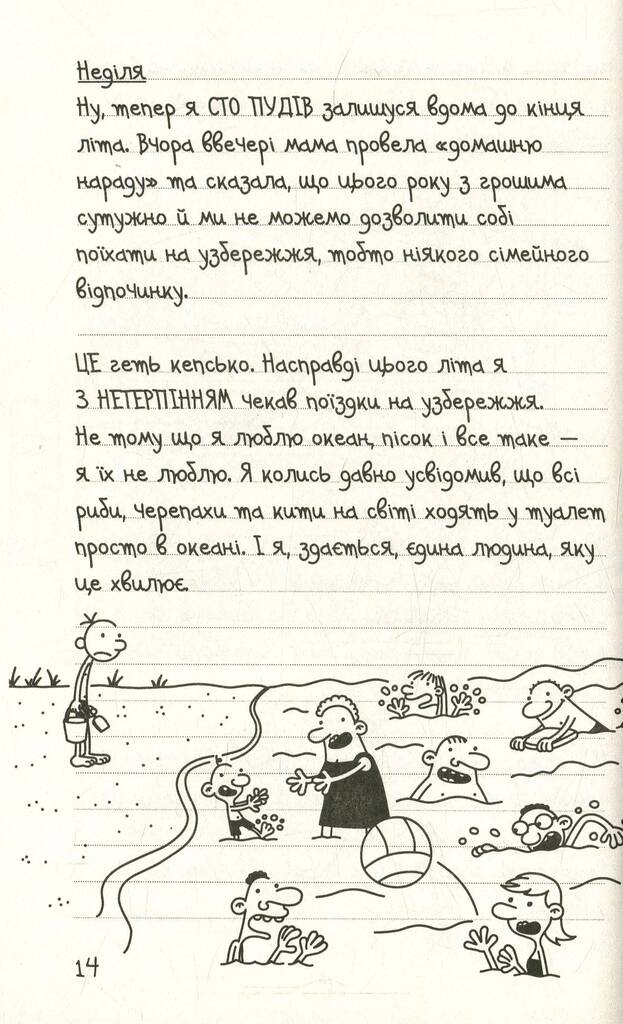 Неділя
Ну, тепер я СТО ПУДІВ залишуся вдома до кінця
літа. Вчора ввечері мама провела «домашню
нараду» та сказала, що цього року з грошима
сутужно й ми не можемо дозволити собі
поїхати на узбережжя, тобто ніякого сімейного
відпочинку.
ЦЕ геть кепсько. Насправді цього літа я
З НЕТЕРПІННЯМ чекав поїздки на узбережжя.
Не тому що я люблю океан, пісок і все таке —
я їх не люблю. Я колись давно усвідомив, що всі
риби, черепахи та кити на світі ходять у туалет
просто в океані. І я, здається, єдина людина, яку
це хвилює.
14